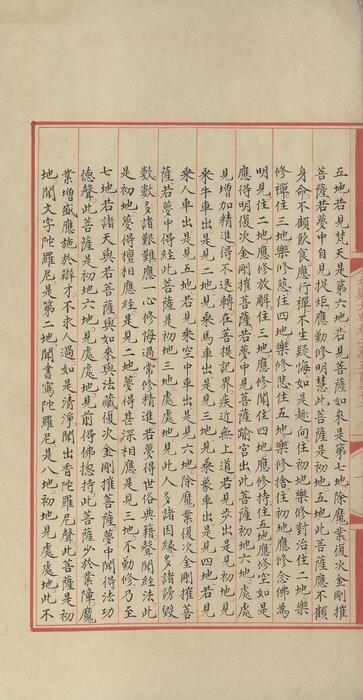 五地若見梵天是第六地若見如來是第七地除魔業復次金剛摧
菩薩若夢中自見捉炬應勤修明慧此菩薩是初地五地此菩薩應不顧
身命不顧飲食應行禪不生疑悔如是趣向住初地樂修對治住二地樂
修禪住三地樂修慈住四地樂修悲住五地樂修捨住初地應修念佛為
明見住二地應修放解住三地應修聞住四地應修持住五地應修空如是
應得明復次金剛摧菩薩若夢中見是菩薩踰宮出此菩薩初地六地處處
見增加精進得不退轉在菩提記界疾近無上道若見步出是見初地見
乘牛車出是見二地見乘馬車出是見三地見乘象車出是見四地若見
乘人車出是見五地若見乘空中車出是見六地除魔業復次金剛摧菩
薩若夢中得經此菩薩是初地三地處處地見此人多諸因緣多諸謗毀
數數多諸艱難應一心修悔過常修精進若夢得世俗典籍聲聞經法此
是初地夢得擅相應經是見二地夢得甚深相應是見三地不勤修乃至
七地若諸天與若菩薩與如來與法藏復次金剛摧菩薩夢中聞得法功
德聲此菩薩是初地六地見處處地見前得佛揔持此菩薩少於業障魔
業增盛應施於辯才不求人過如是清淨聞出香陀羅尼聲此菩薩是初
地聞文字陀羅尼是第二地聞書寫陀羅尼是八地初地見處處地此不